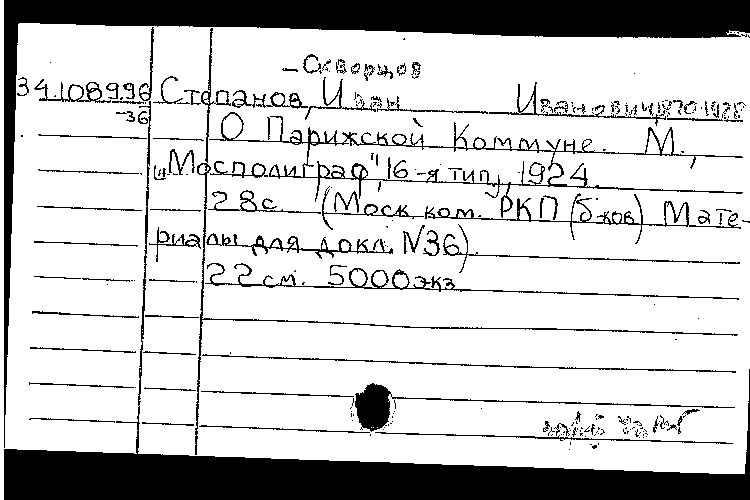 -Скворцов
34.108996 Степанов, Иван Иванович, 1870-1928
-36
О Парижской Коммуне. М.,
„Мосполиграф" 16-я тип., 1924.
28с. (Моск. ком. РКП (б-ков) Мате-
риалы для докл. N36).
22см. 5000экз.